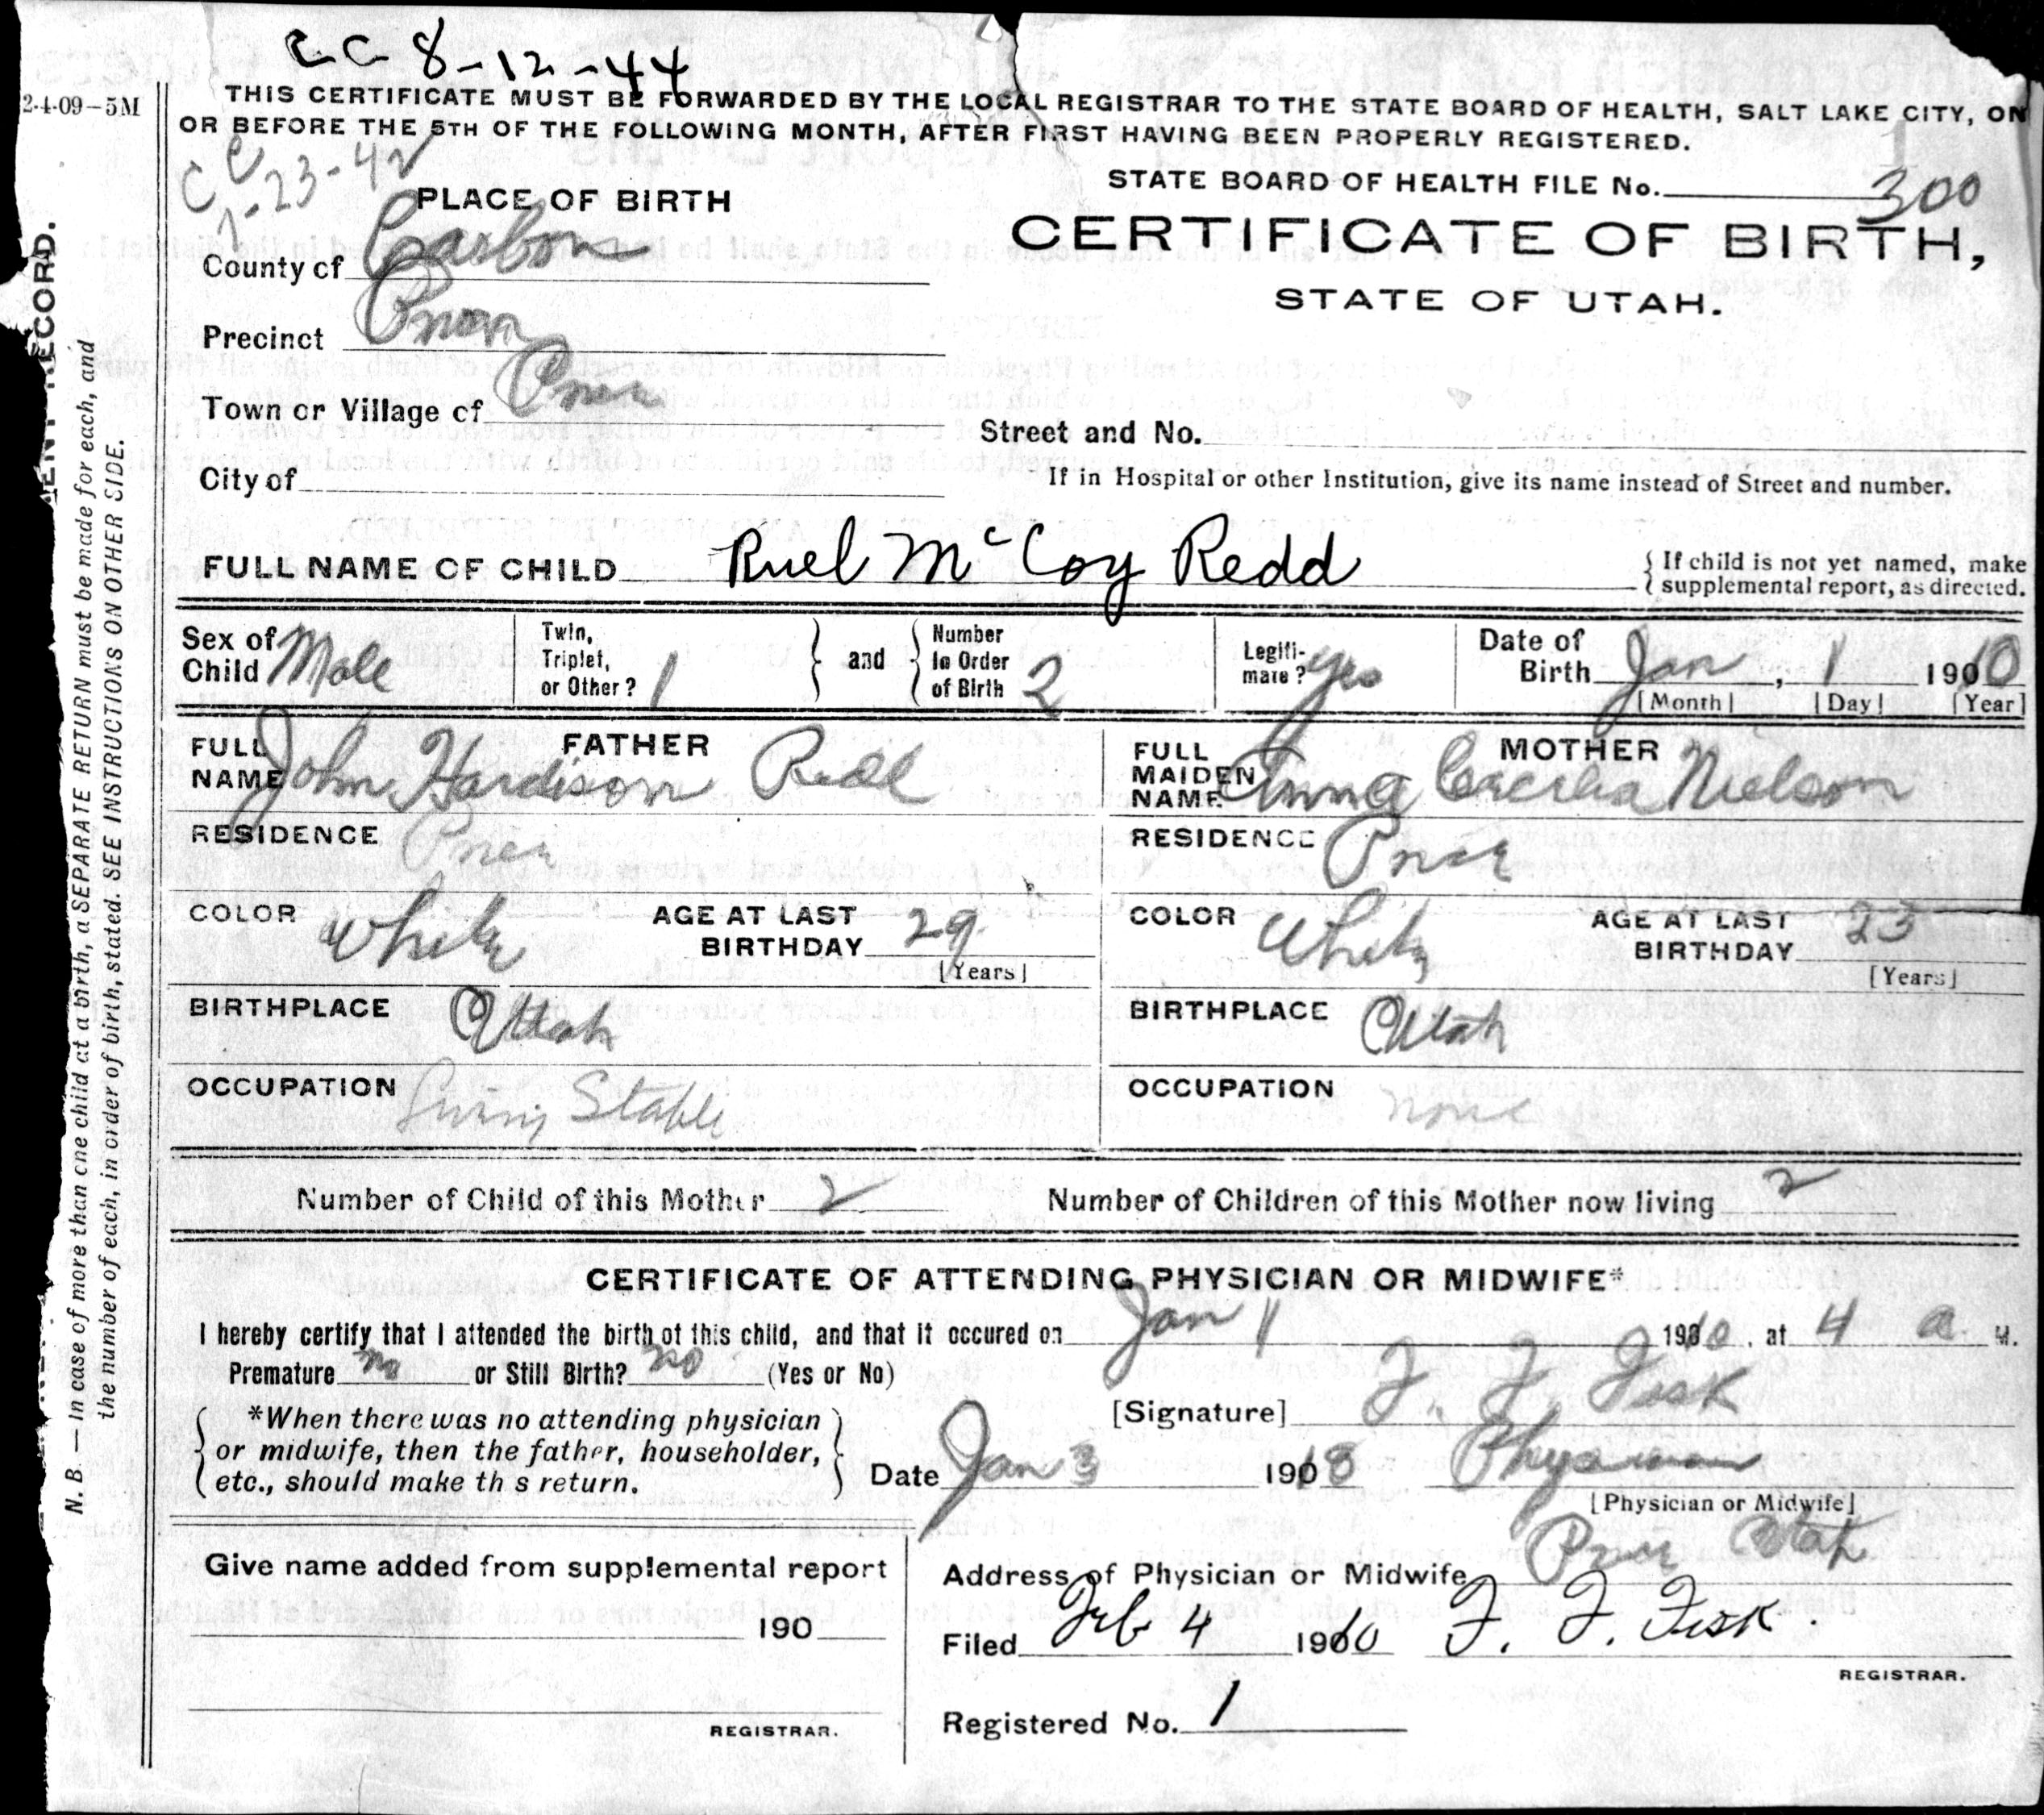 CC 8-12-44
2-4-09-5M
THIS CERTIFICATE MUST BE FORWARDED BY THE LOCAL REGISTRAR TO THE STATE BOARD OF HEALTH, SALT LAKE CITY, ON
OR BEFORE THE 5TH OF THE FOLLOWING MONTH, AFTER FIRST HAVING BEEN PROPERLY REGISTERED.
CC
1-23-42
STATE BOARD OF HEALTH FILE No. 300
PLACE OF BIRTH
CERTIFICATE OF BIRTH,
STATE OF UTAH.
County of Carbon
Precinct Price
Town or Village of Price
Street and No.
City of
If in Hospital or other Institution, give its name instead of Street and number.
FULL NAME OF CHILD Ruel McCoy Redd
{ If child is not yet named, make
supplemental report, as directed.
Sex of Child Male
Twin, Triplet, or Other? 1
and
Number in Order of Birth 2
Legitimate? yes
Date of Birth Jan, 1 1910
[Month] [Day] [Year]
FATHER
FULL NAME John Hardison Redd
RESIDENCE Price
COLOR White
AGE AT LAST BIRTHDAY 29
[Years]
BIRTHPLACE Utah
OCCUPATION Livery Stable
MOTHER
FULL MAIDEN NAME Anna Cecelia Nielson
RESIDENCE Price
COLOR White
AGE AT LAST BIRTHDAY 23
[Years]
BIRTHPLACE Utah
OCCUPATION none
Number of Child of this Mother 2
Number of Children of this Mother now living 2
CERTIFICATE OF ATTENDING PHYSICIAN OR MIDWIFE*
I hereby certify that I attended the birth of this child, and that it occured on Jan 1 1910, at 4 a M.
Premature no or Still Birth? no (Yes or No)
*When there was no attending physician
or midwife, then the father, householder,
etc., should make th s return.
[Signature] F. F. Fisk
Date Jan 3 1910 Physician
[Physician or Midwife]
Address of Physician or Midwife Price Utah
Give name added from supplemental report
190
REGISTRAR.
Filed Feb 4 1910 F. F. Fisk.
REGISTRAR.
Registered No. 1
ENT RECORD.
N. B.—In case of more than one child at a birth, a SEPARATE RETURN must be made for each, and
the number of each, in order of birth, stated. SEE INSTRUCTIONS ON OTHER SIDE.